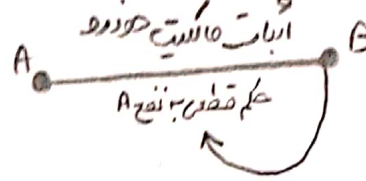 اثبات مالکیت خودرو
A
B
حکم قطعی به نفع A